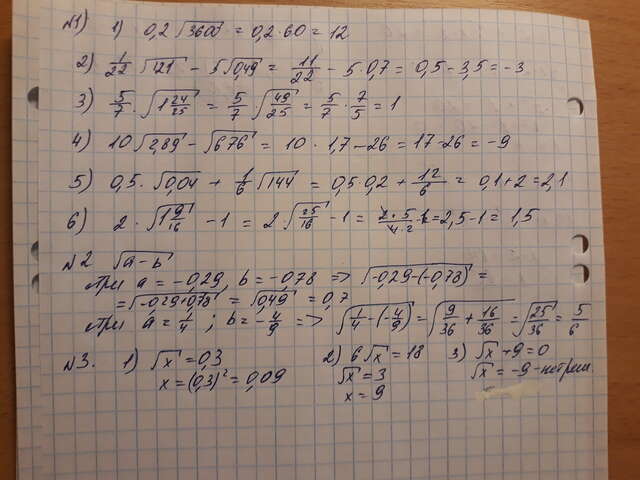 №1) 1) 0,2√3600 = 0,2·60 = 12
2) 1/22 √121 - 5√0,49 = 11/22 - 5·0,7 = 0,5 - 3,5 = -3
3) 5/7 √1 24/25 = 5/7 √49/25 = 5/7 · 7/5 = 1
4) 10√2,89 - √676 = 10 · 1,7 - 26 = 17 - 26 = -9
5) 0,5 · √0,04 + 1/6 √144 = 0,5 · 0,2 + 12/6 = 0,1 + 2 = 2,1
6) 2 · √1 9/16 - 1 = 2 · √25/16 - 1 = 2·5/4·2 - 1 = 2,5 - 1 = 1,5
№2 √a-b
при a = -0,29, b = -0,78 => √-0,29-(-0,78) =
= √-0,29+0,78 = √0,49 = 0,7
при a = 1/4 ; b = -4/9 => √1/4 - (-4/9) = √9/36 + 16/36 = √25/36 = 5/6
№3. 1) √x = 0,3 2) 6√x = 18 3) √x + 9 = 0
x = (0,3)² = 0,09 √x = 3 √x = -9 -
x = 9